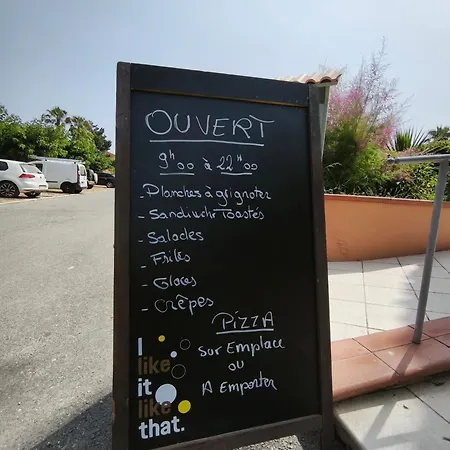 OUVERT
9h00 à 22H00
- Planches à grignoter
- Sandwichs Toastés
- Salades
- Frites
- Glaces
- Crêpes
PIZZA
Sur Emplace
ou
A Emporter
I
like
it
like
that.